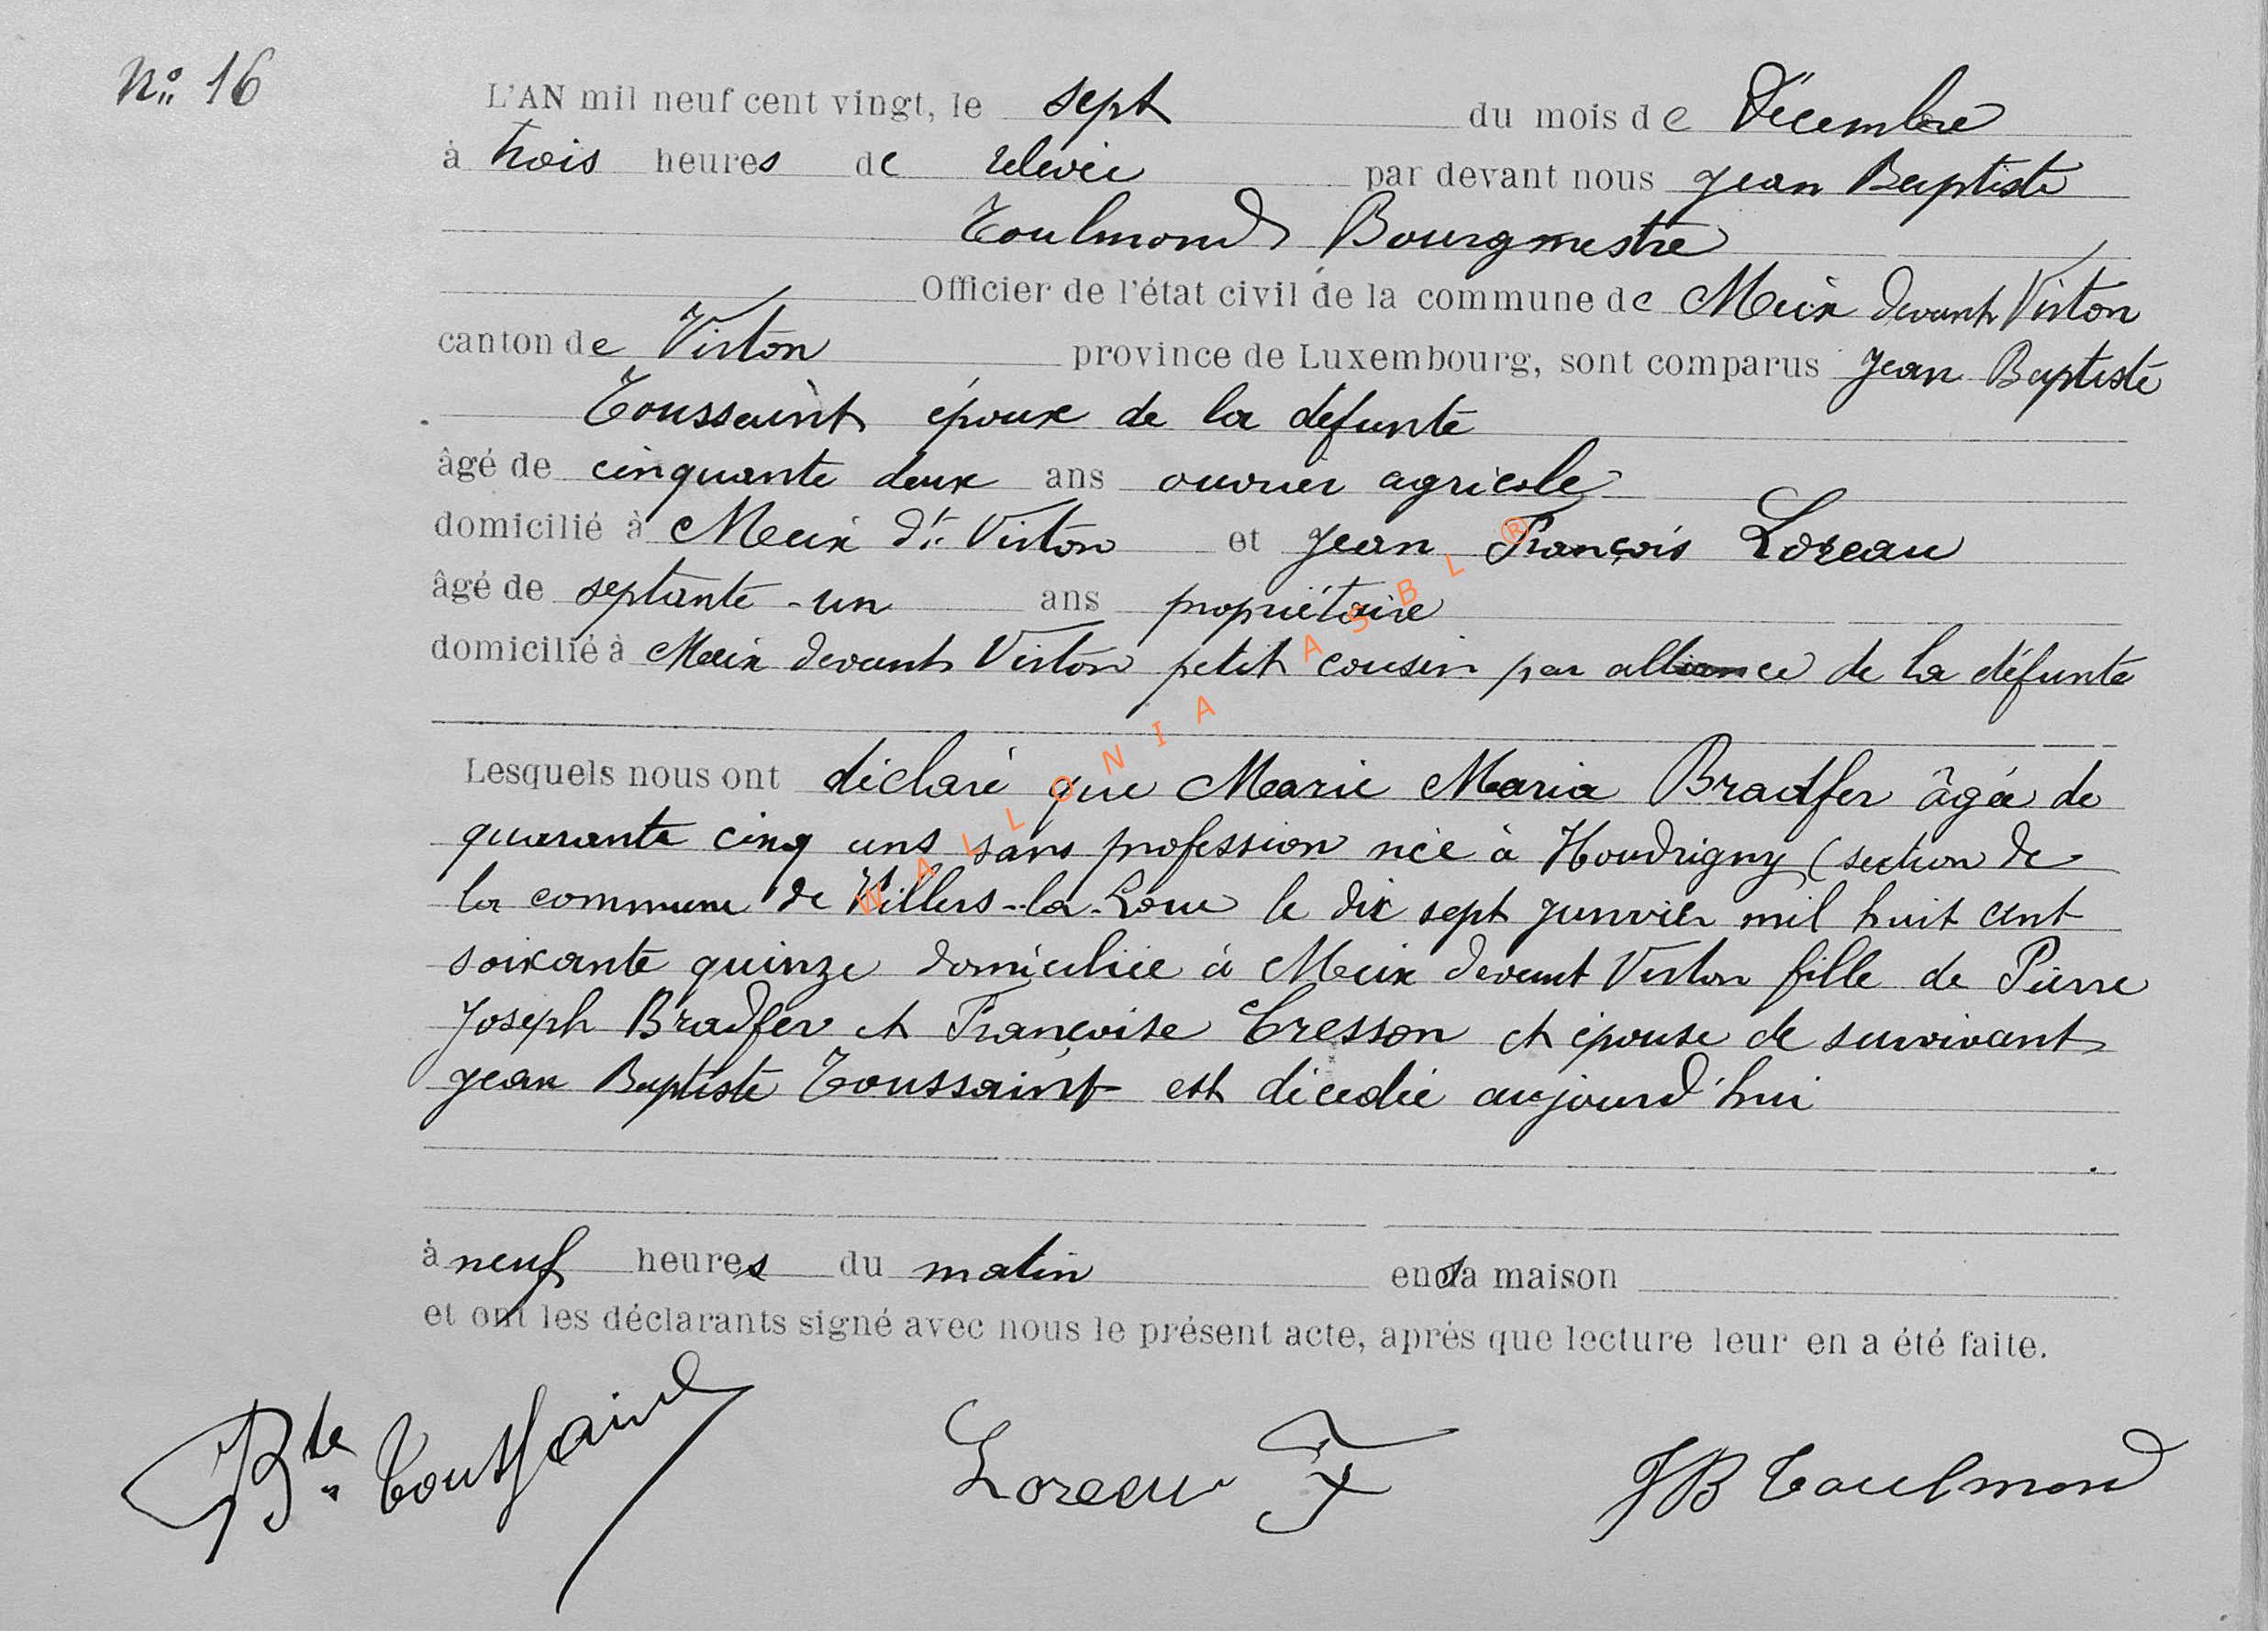 N° 16
L'AN mil neuf cent vingt, le sept du mois de Décembre
à trois heures de relevée par devant nous Jean Baptiste
Toulmond Bourgmestre
Officier de l'état civil de la commune de Meix devant Virton
canton de Virton province de Luxembourg, sont comparus Jean Baptiste
Toussaint époux de la défunte
âgé de cinquante deux ans ouvrier agricole
domicilié à Meix dt Virton et Jean François Loreau
âgé de septante-un ans propriétaire
domicilié à Meix devant Virton petit cousin par alliance de la défunte
Lesquels nous ont déclaré que Marie Maria Bradfer âgée de
quarante cinq ans sans profession née à Houdrigny (section de
la commune de Villers-la-Loue le dix sept janvier mil huit cent
soixante quinze domiciliée à Meix devant Virton fille de Pierre
Joseph Bradfer et Françoise Cresson et épouse de survivant
Jean Baptiste Toussaint est décédée aujourd'hui
à neuf heures du matin en sa maison
et ont les déclarants signé avec nous le présent acte, après que lecture leur en a été faite.
Bte Toussaint Loreau F JB Toulmond
WALLONIA ASBL ®